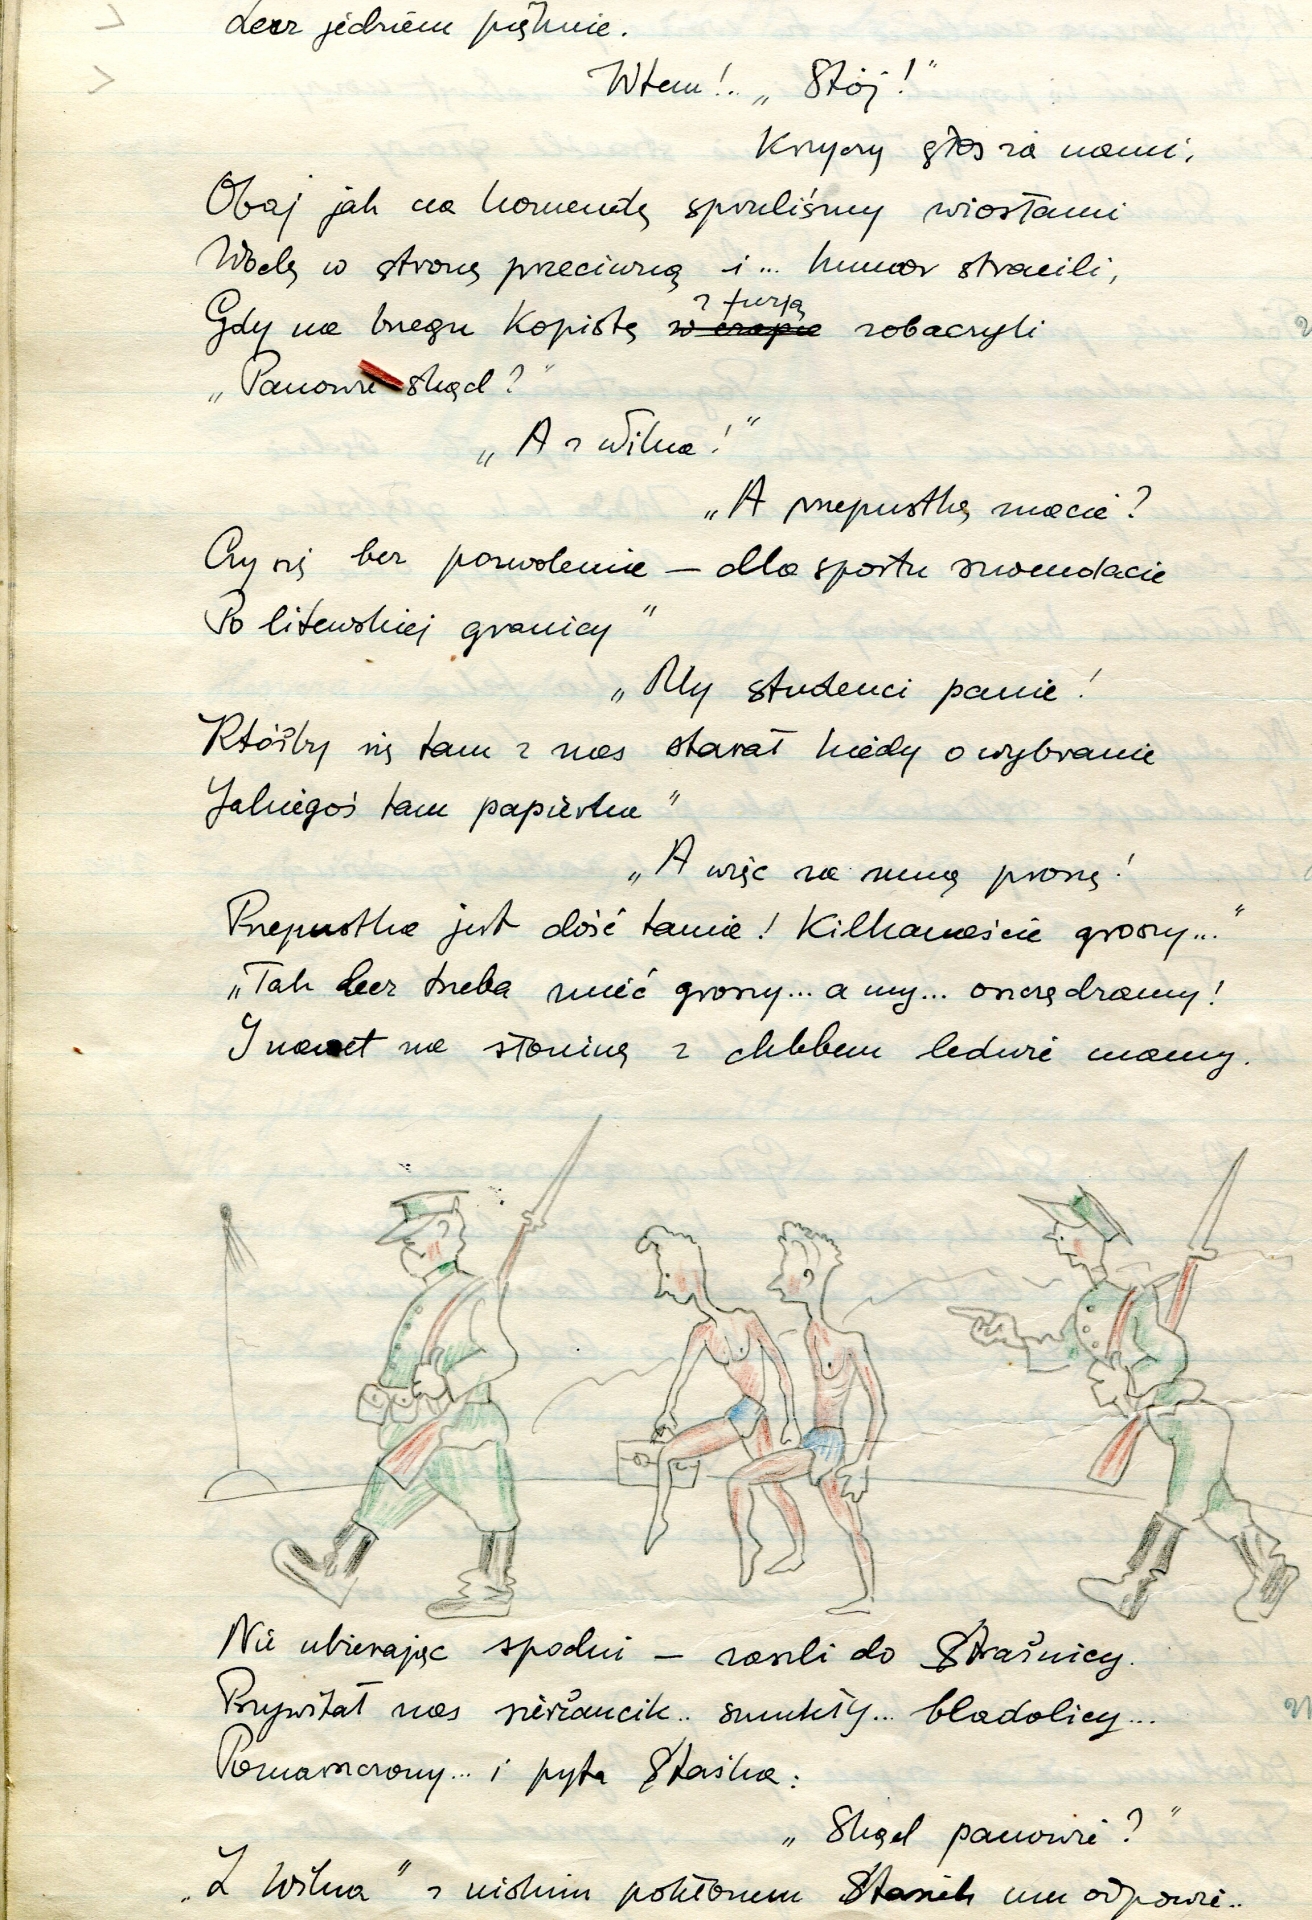 Lecz jedziem pięknie.
Wtem!.. „Stój!"
Krzyczy głos za nami,
Obaj jak na komendę spruliśmy wiosłami
Wodę w stronę przeciwną i... humor stracili,
z furją
Gdy na brzegu Kopistę w czapie zobaczyli
„Panowie skąd?"
„A z Wilna!"
„A przepustkę macie?
Czy się bez pozwolenia — dla sportu szwendacie
Po litewskiej granicy"
„My studenci panie!
Któżby się tam z nas starał kiedy o wybranie
Jakiegoś tam papierka"
„A więc za mną proszę!
Przepustka jest dość tania! Kilkanaście groszy..."
„Tak lecz trzeba mieć groszy... a my... oszczędzamy!
I nawet na słoninę z chlebem ledwie mamy.
Nie ubierając spodni — zaszli do Strażnicy.
Przywitał nas sierżancik.. smukły... bladolicy...
Pomarszczony... i pyta Staśka:
„Skąd panowie?"
„Z Wilna" z niskim pokłonem Stasiek mu odpowie..